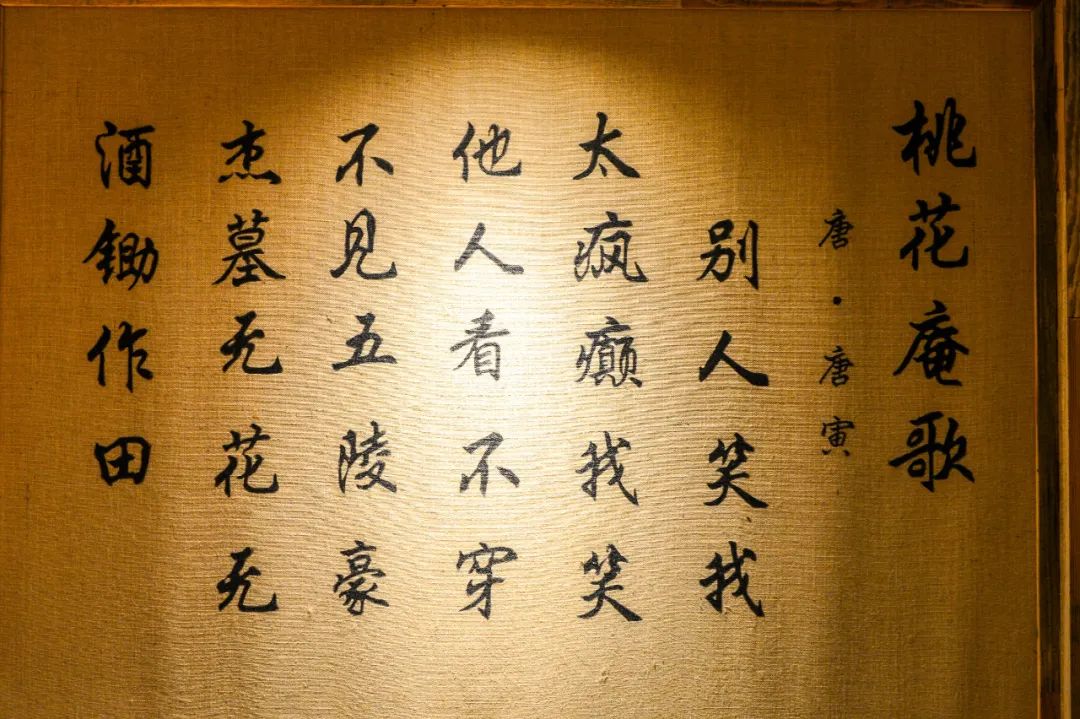 桃花庵歌
唐·唐寅
别人笑我
太疯癫我笑
他人看不穿
不见五陵豪
杰墓无花无
酒锄作田